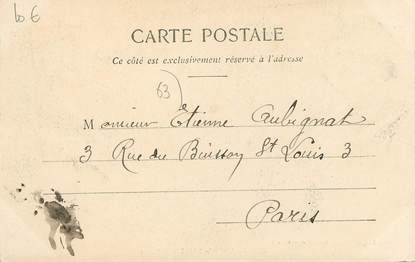 10 €
CARTE POSTALE
Ce côté est exclusivement réservé à l'adresse
63
Monsieur Etienne Aubignat
3 Rue du Buisson St Louis 3
Paris